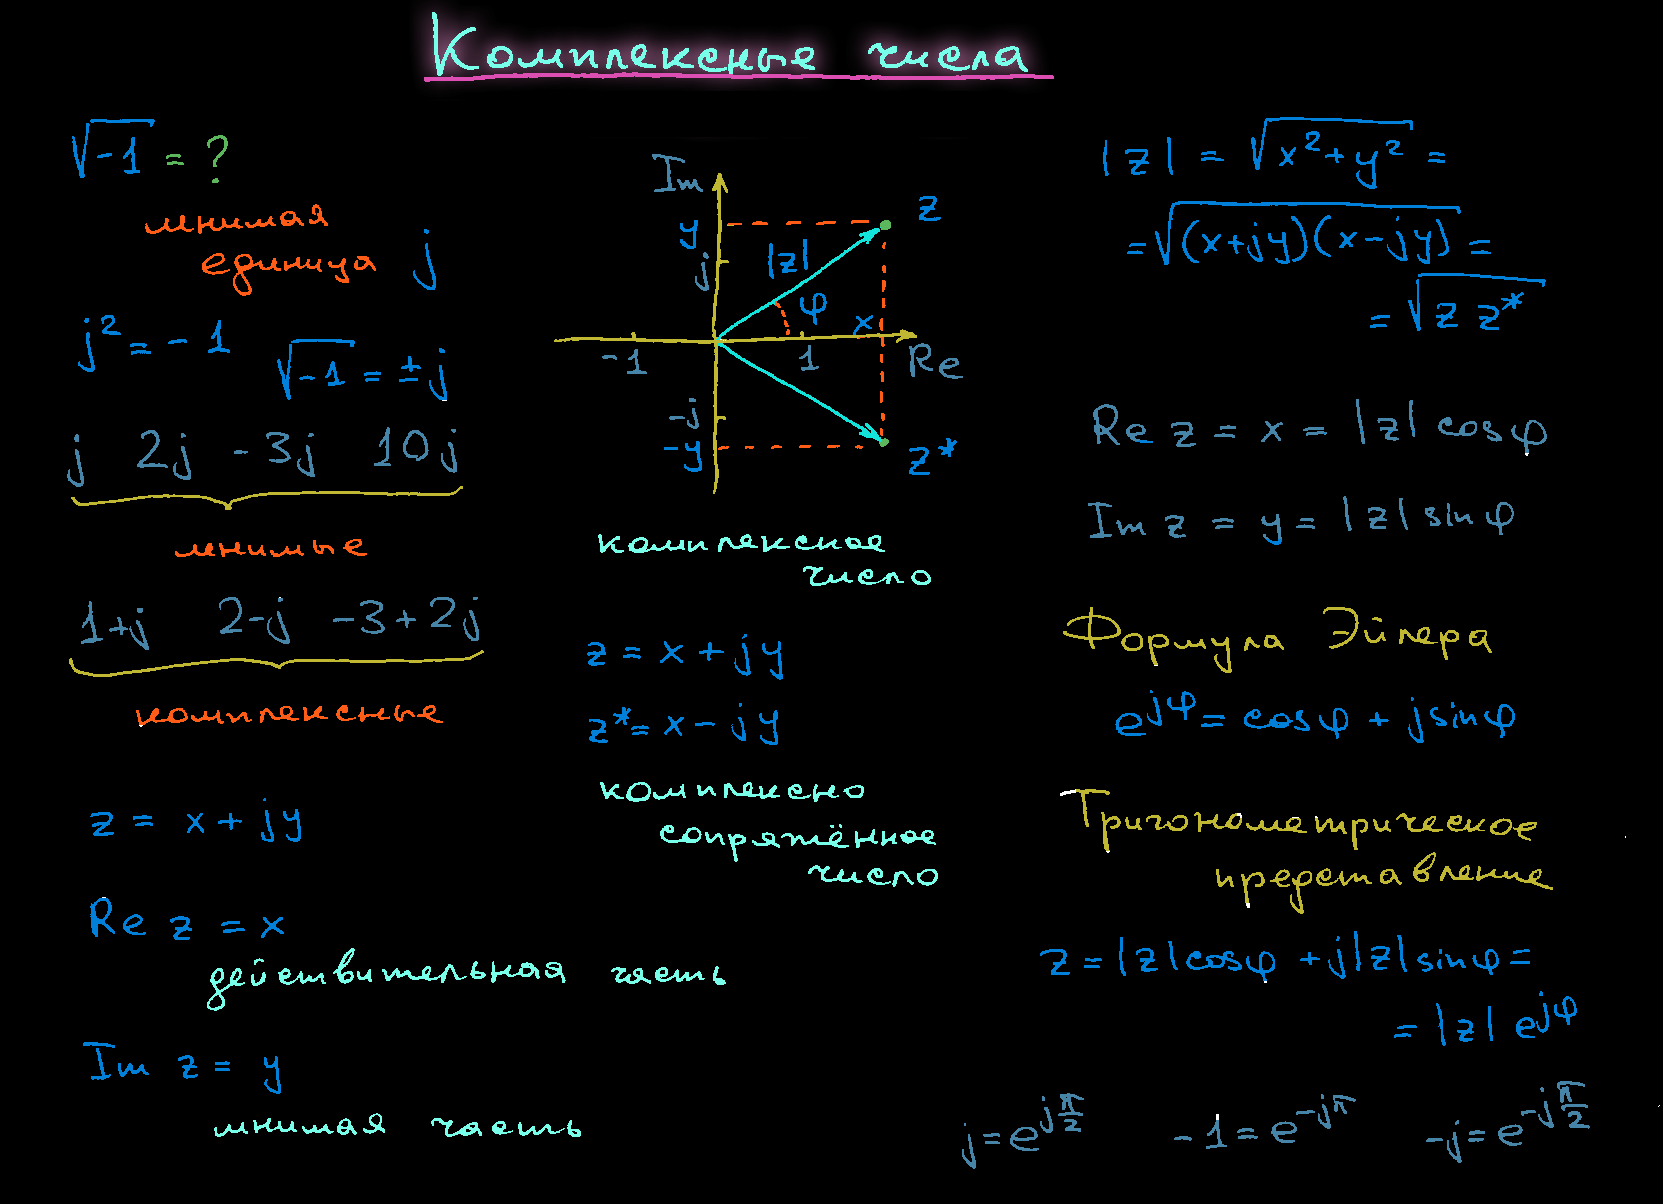 Комплексные числа
√-1 = ?
мнимая
единица j
j² = -1
√-1 = ± j
j 2j -3j 10j
мнимые
1+j 2-j -3+2j
комплексные
z = x + jy
Re z = x
действительная часть
Im z = y
мнимая часть
Im
y
j
|z|
φ
z
x
-1
1
Re
-j
-y
z*
комплексное
число
z = x + jy
z* = x - jy
комплексно
сопряжённое
число
|z| = √x²+y² =
= √(x+jy)(x-jy) =
= √z z*
Re z = x = |z| cosφ
Im z = y = |z| sinφ
Формула Эйлера
e^jφ = cosφ + jsinφ
Тригонометрическое
представление
z = |z|cosφ + j|z|sinφ =
= |z| e^jφ
j = e^jπ/2 -1 = e^-jπ -j = e^-jπ/2